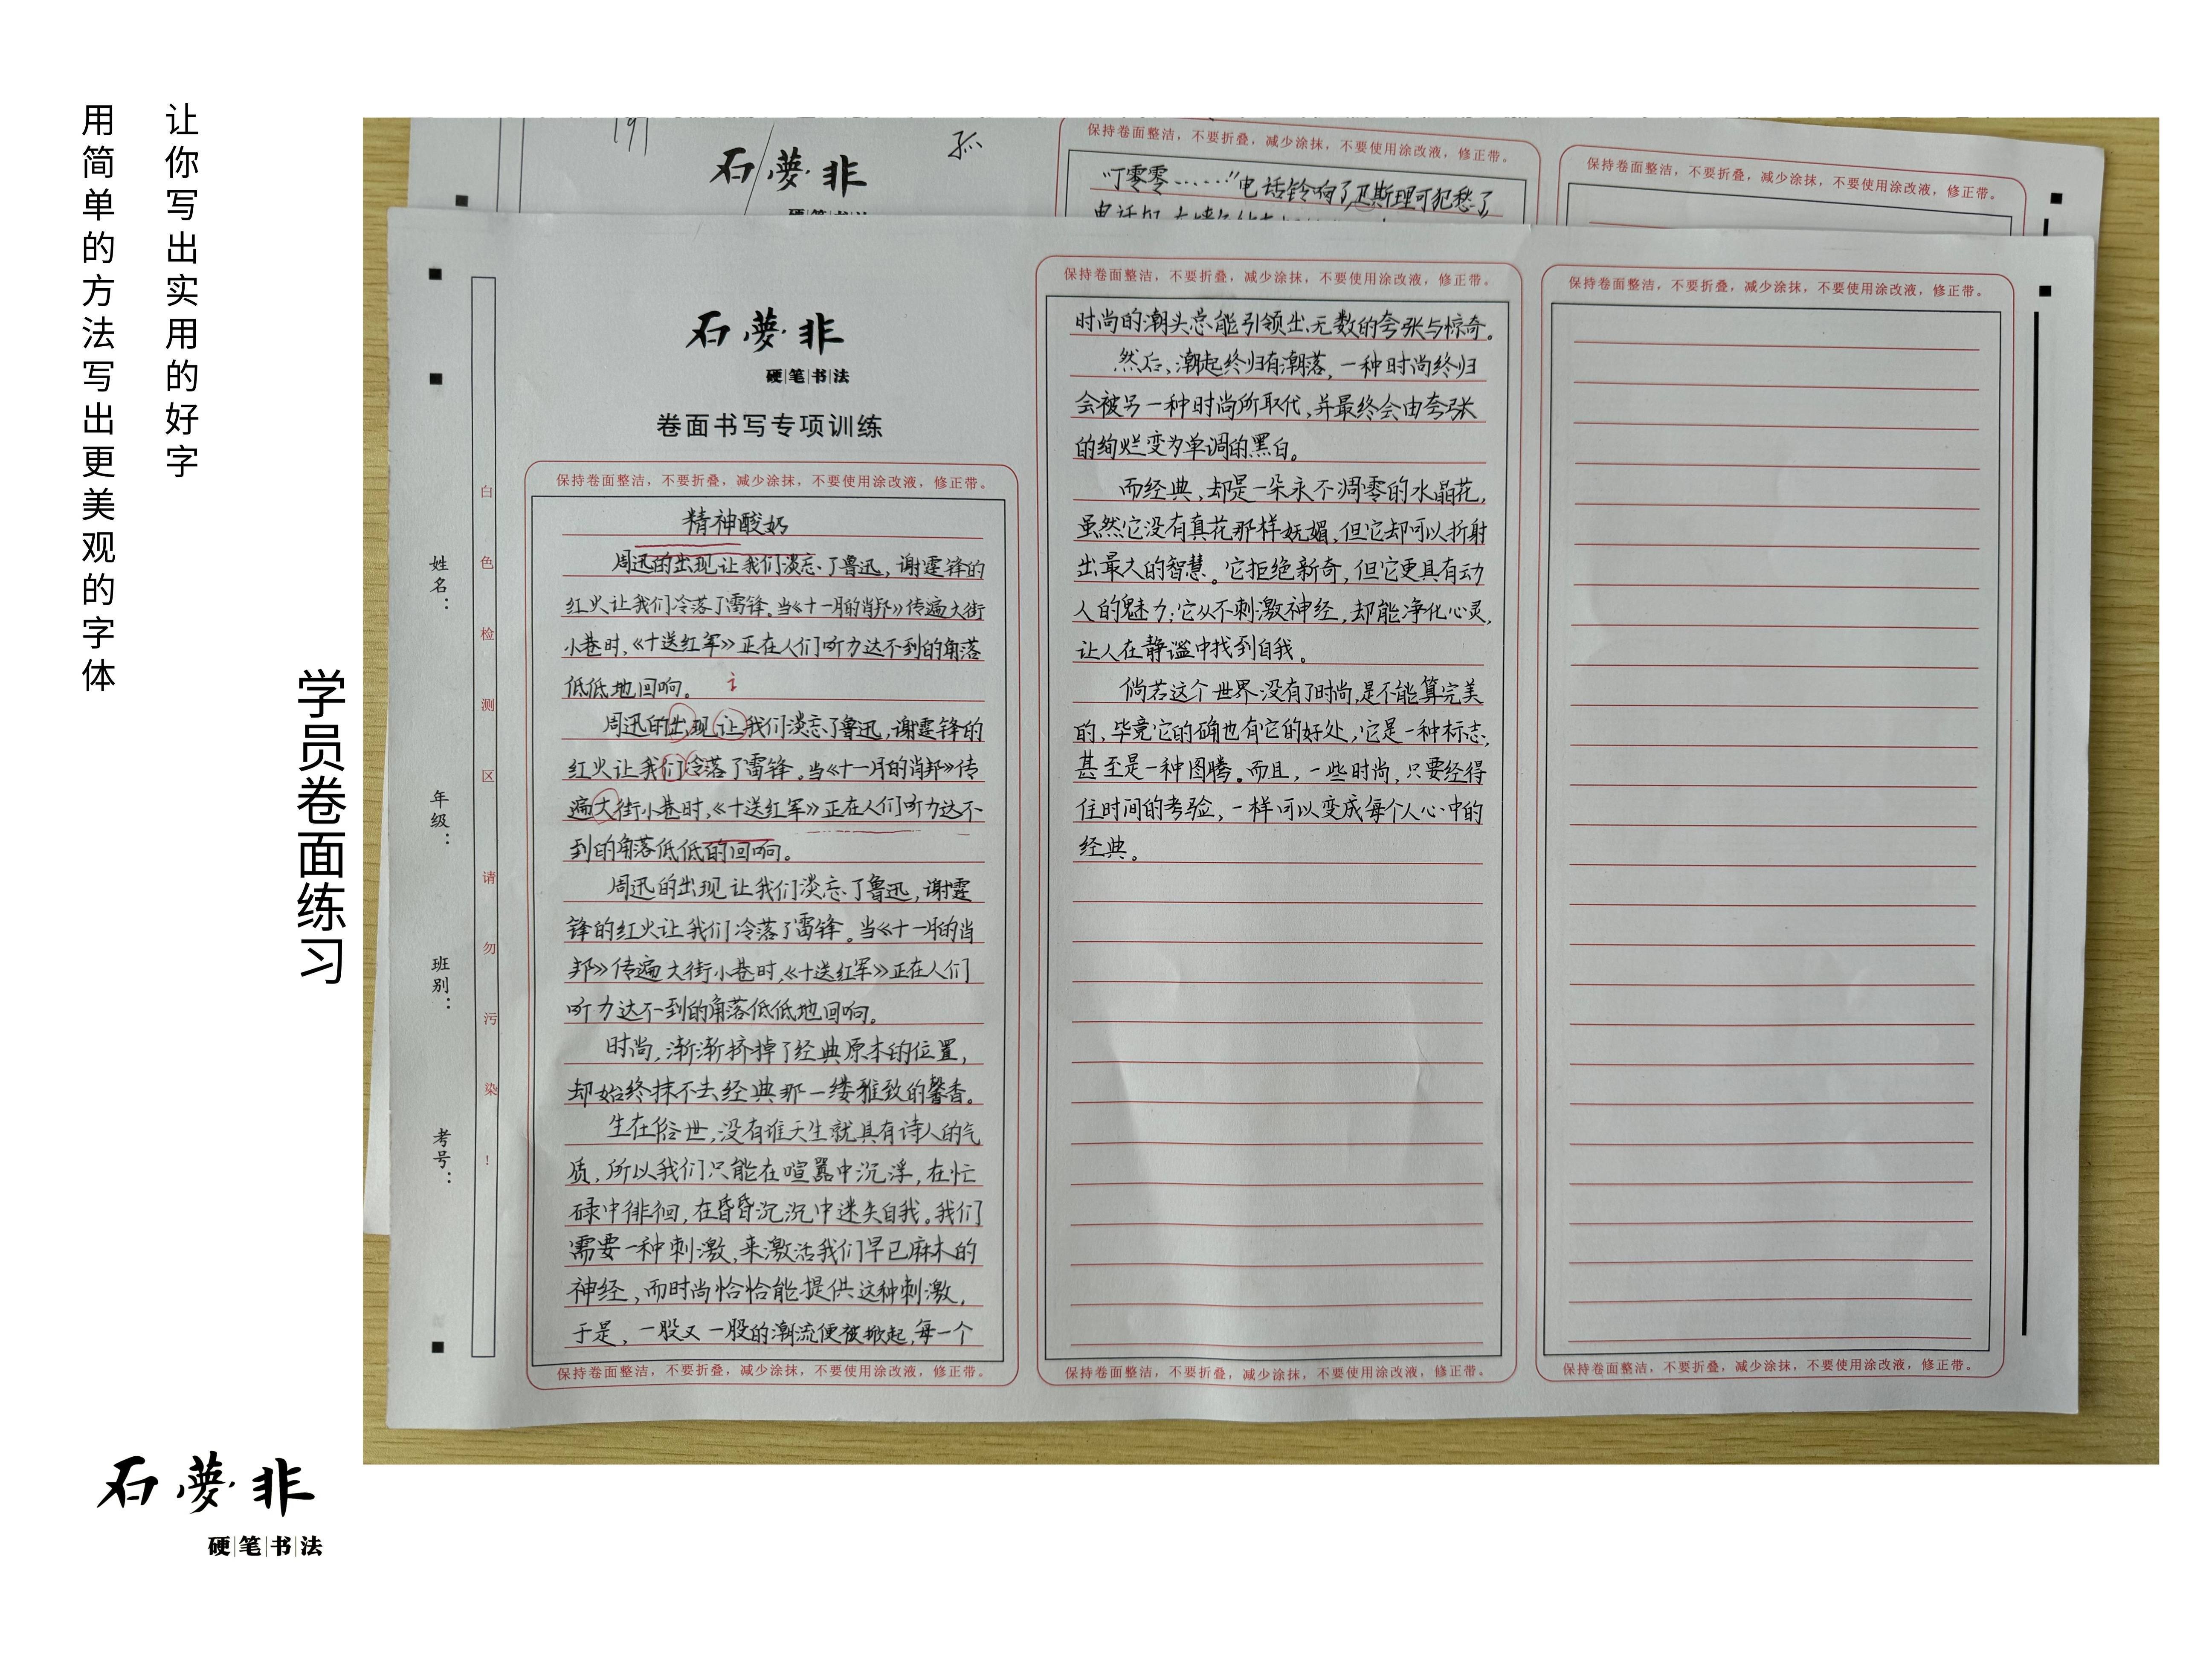 让你写出实用的好字
用简单的方法写出更美观的字体
学员卷面练习
石夢非
硬笔书法
石夢非
孤
保持卷面整洁，不要折叠，减少涂抹，不要使用涂改液，修正带。
“丁零零……”电话铃响了，卫斯理可犯愁了，
保持卷面整洁，不要折叠，减少涂抹，不要使用涂改液，修正带。
白色检测区 请勿污染！
姓名：
年级：
班别：
考号：
石夢非
硬笔书法
卷面书写专项训练
保持卷面整洁，不要折叠，减少涂抹，不要使用涂改液，修正带。
精神酸奶
周迅的出现让我们淡忘了鲁迅，谢霆锋的
红火让我们冷落了雷锋。当《十一月的肖邦》传遍大街
小巷时，《十送红军》正在人们听力达不到的角落
低低地回响。
周迅的出现让我们淡忘了鲁迅，谢霆锋的
红火让我们冷落了雷锋。当《十一月的肖邦》传
遍大街小巷时，《十送红军》正在人们听力达不
到的角落低低的回响。
周迅的出现让我们淡忘了鲁迅，谢霆
锋的红火让我们冷落了雷锋。当《十一月的肖
邦》传遍大街小巷时，《十送红军》正在人们
听力达不到的角落低低地回响。
时尚，渐渐挤掉了经典原本的位置，
却始终抹不去经典那一缕雅致的馨香。
生在俗世，没有谁天生就具有诗人的气
质，所以我们只能在喧嚣中沉浮，在忙
碌中徘徊，在昏昏沉沉中迷失自我。我们
需要一种刺激，来激活我们早已麻木的
神经，而时尚恰恰能提供这种刺激，
于是，一股又一股的潮流便被掀起，每一个
保持卷面整洁，不要折叠，减少涂抹，不要使用涂改液，修正带。
保持卷面整洁，不要折叠，减少涂抹，不要使用涂改液，修正带。
时尚的潮头总能引领出无数的夸张与惊奇。
然后，潮起终归有潮落，一种时尚终归
会被另一种时尚所取代，并最终会由夸张
的绚烂变为单调的黑白。
而经典，却是一朵永不凋零的水晶花，
虽然它没有真花那样妩媚，但它却可以折射
出最大的智慧。它拒绝新奇，但它更具有动
人的魅力；它从不刺激神经，却能净化心灵，
让人在静谧中找到自我。
倘若这个世界没有了时尚，是不能算完美
的，毕竟它的确也有它的好处，它是一种标志，
甚至是一种图腾。而且，一些时尚，只要经得
住时间的考验，一样可以变成每个人心中的
经典。
保持卷面整洁，不要折叠，减少涂抹，不要使用涂改液，修正带。
保持卷面整洁，不要折叠，减少涂抹，不要使用涂改液，修正带。
保持卷面整洁，不要折叠，减少涂抹，不要使用涂改液，修正带。